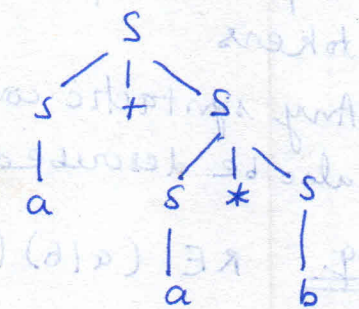 S
S + S
a S * S
a b